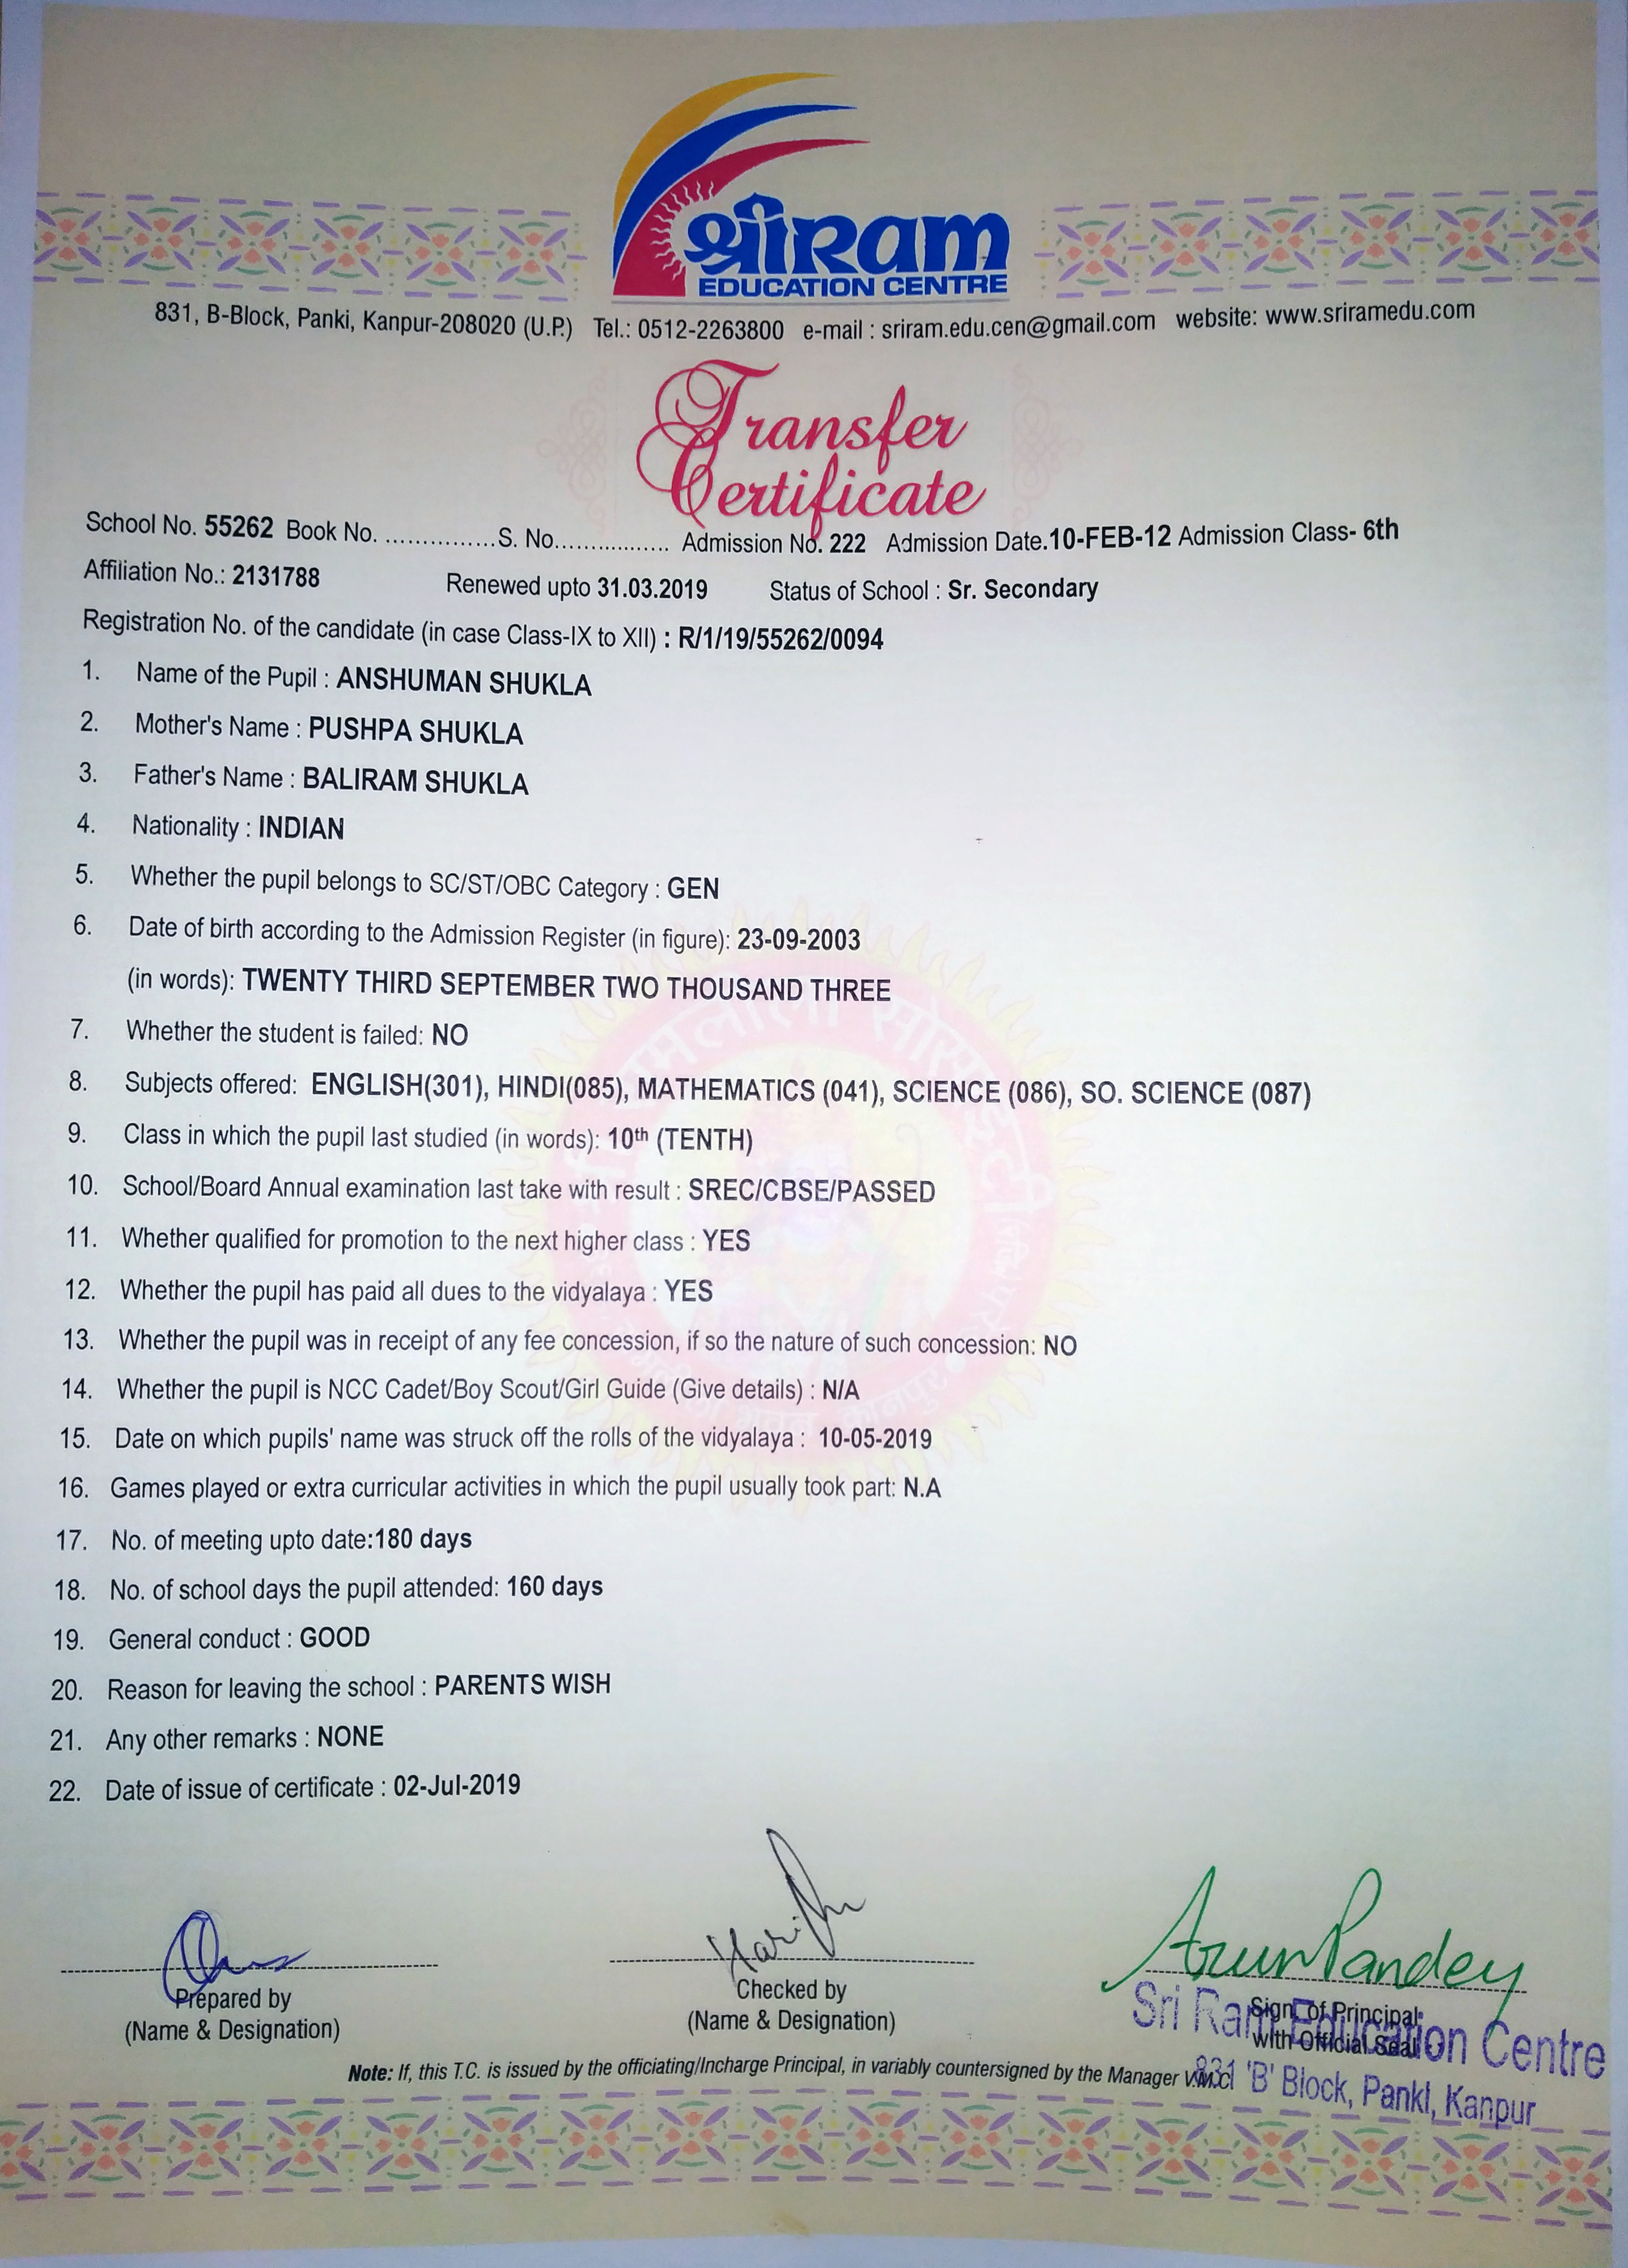 श्रीRam
EDUCATION CENTRE
831, B-Block, Panki, Kanpur-208020 (U.P.) Tel.: 0512-2263800 e-mail : sriram.edu.cen@gmail.com website: www.sriramedu.com
Transfer
Certificate
School No. 55262 Book No. ............... S. No................. Admission No. 222 Admission Date.10-FEB-12 Admission Class- 6th
Affiliation No.: 2131788 Renewed upto 31.03.2019 Status of School : Sr. Secondary
Registration No. of the candidate (in case Class-IX to XII) : R/1/19/55262/0094
1. Name of the Pupil : ANSHUMAN SHUKLA
2. Mother's Name : PUSHPA SHUKLA
3. Father's Name : BALIRAM SHUKLA
4. Nationality : INDIAN
5. Whether the pupil belongs to SC/ST/OBC Category : GEN
6. Date of birth according to the Admission Register (in figure): 23-09-2003
(in words): TWENTY THIRD SEPTEMBER TWO THOUSAND THREE
7. Whether the student is failed: NO
8. Subjects offered: ENGLISH(301), HINDI(085), MATHEMATICS (041), SCIENCE (086), SO. SCIENCE (087)
9. Class in which the pupil last studied (in words): 10th (TENTH)
10. School/Board Annual examination last take with result : SREC/CBSE/PASSED
11. Whether qualified for promotion to the next higher class : YES
12. Whether the pupil has paid all dues to the vidyalaya : YES
13. Whether the pupil was in receipt of any fee concession, if so the nature of such concession: NO
14. Whether the pupil is NCC Cadet/Boy Scout/Girl Guide (Give details) : N/A
15. Date on which pupils' name was struck off the rolls of the vidyalaya : 10-05-2019
16. Games played or extra curricular activities in which the pupil usually took part: N.A
17. No. of meeting upto date:180 days
18. No. of school days the pupil attended: 160 days
19. General conduct : GOOD
20. Reason for leaving the school : PARENTS WISH
21. Any other remarks : NONE
22. Date of issue of certificate : 02-Jul-2019
Arun Pandey
Prepared by
(Name & Designation)
Checked by
(Name & Designation)
Sign. of Principal
with Official Seal
Sri Ram Education Centre
831 'B' Block, Panki, Kanpur
Note: If, this T.C. is issued by the officiating/Incharge Principal, in variably countersigned by the Manager V.M.C.